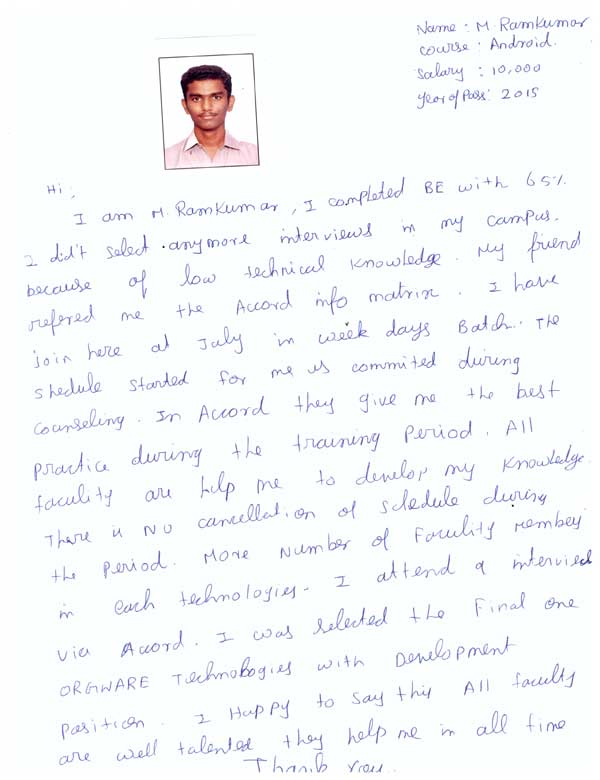 Name : M. Ramkumar
Course : Android.
Salary : 10,000
Year of Pass: 2015
Hi,
I am M. Ramkumar, I completed BE with 65%.
I did't select anymore interviews in my campus.
because of low technical knowledge. My friend
refered me the Accord info matrix. I have
join here at July in week days Batch. The
shedule started for me as commited during
Counseling. In Accord they give me the best
practice during the training period. All
faculty are help me to develop my knowledge
There is No cancellation of schedule during
the period. More Number of Faculity Member
in each technologies. I attend 9 interviews
via Accord. I was selected the Final one
ORGWARE Technologies with Development
Position. I Happy to say this All faculty
are well talented they help me in all time
Thank you.